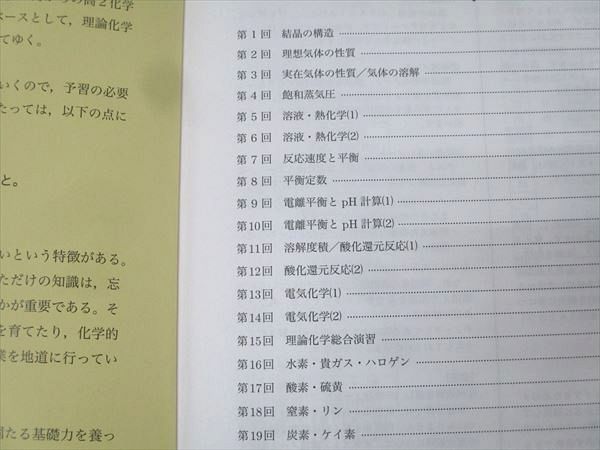 高2化学
ベースとして，理論化学
てゆく。
いくので，予習の必要
たっては，以下の点に
と。
いという特徴がある。
ただけの知識は，忘
かが重要である。そ
を育てたり，化学的
業を地道に行ってい
たる基礎力を養っ
第1回 結晶の構造
第2回 理想気体の性質
第3回 実在気体の性質／気体の溶解
第4回 飽和蒸気圧
第5回 溶液・熱化学(1)
第6回 溶液・熱化学(2)
第7回 反応速度と平衡
第8回 平衡定数
第9回 電離平衡と pH 計算(1)
第10回 電離平衡と pH 計算(2)
第11回 溶解度積／酸化還元反応(1)
第12回 酸化還元反応(2)
第13回 電気化学(1)
第14回 電気化学(2)
第15回 理論化学総合演習
第16回 水素・貴ガス・ハロゲン
第17回 酸素・硫黄
第18回 窒素・リン
第19回 炭素・ケイ素